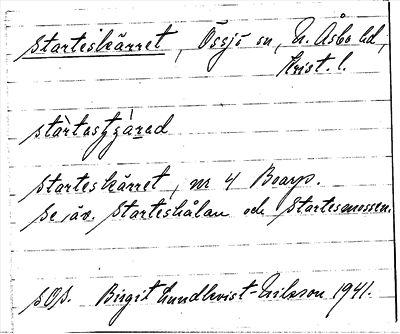 Starteskärret, Össjö sn, N. Åsbo hd,
Krist. l.
Starteskärret, nr 4 Boarp.
Se äv. Starteshålan och Startesmossen.
SOS. Birgit Lundkvist-Erikson 1941.